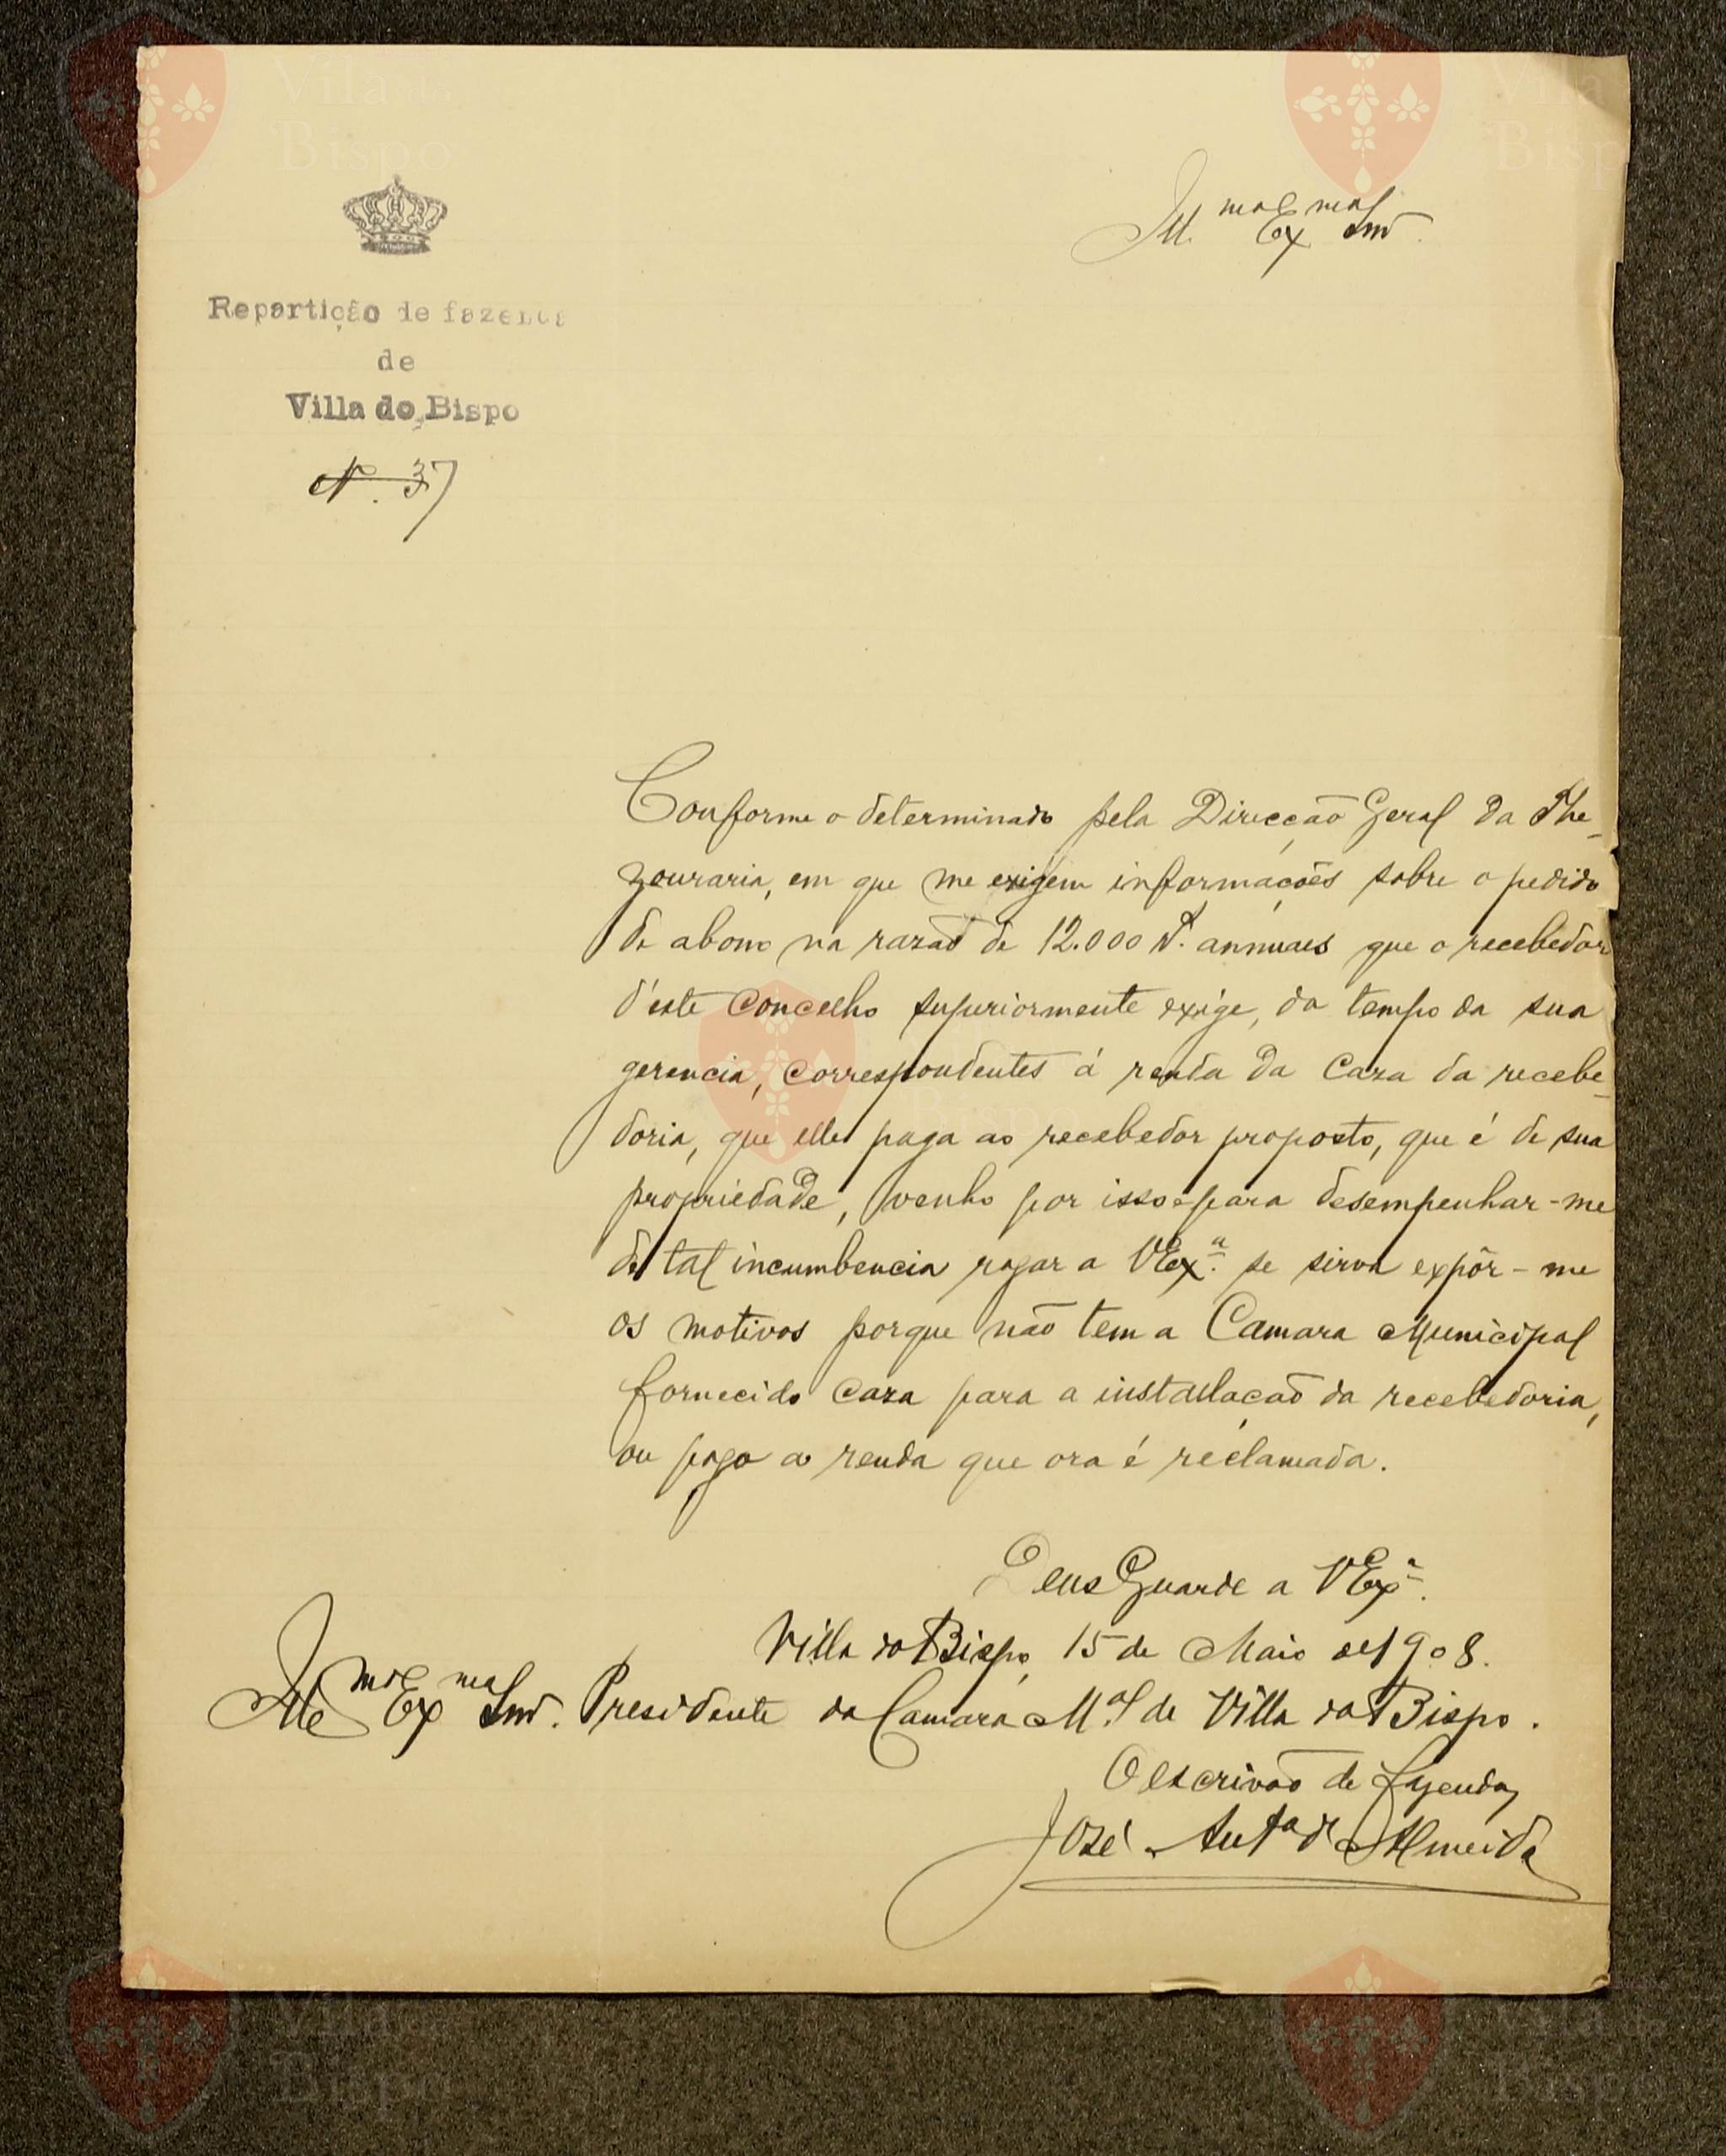 Repartição de fazenda
de
Villa do Bispo
N. 37
Ill.mo e Ex.mo Snr.
Conforme o determinado pela Direcção Geral da The-
zouraria, em que me exigem informações sobre o pedido
de abono na razão de 12.000 rs. annuaes que o recebedor
d'este concelho superiormente exige, do tempo da sua
gerencia, correspondentes á renda da Caza da recebe-
doria, que elle paga ao recebedor proposto, que é de sua
propriedade, venho por isso e para desempenhar-me
de tal incumbencia rogar a V Ex.a se sirva expôr-me
os motivos porque não tem a Camara Municipal
fornecido caza para a installação da recebedoria,
ou pago a renda que ora é reclamada.
Deus Guarde a V Ex.a
Villa do Bispo, 15 de Maio de 1908.
Ill.mo e Ex.mo Snr. Presidente da Camara M.al de Villa do Bispo.
O escrivão de fazenda,
José Ant.o d'Almeida
Vila do
Bispo